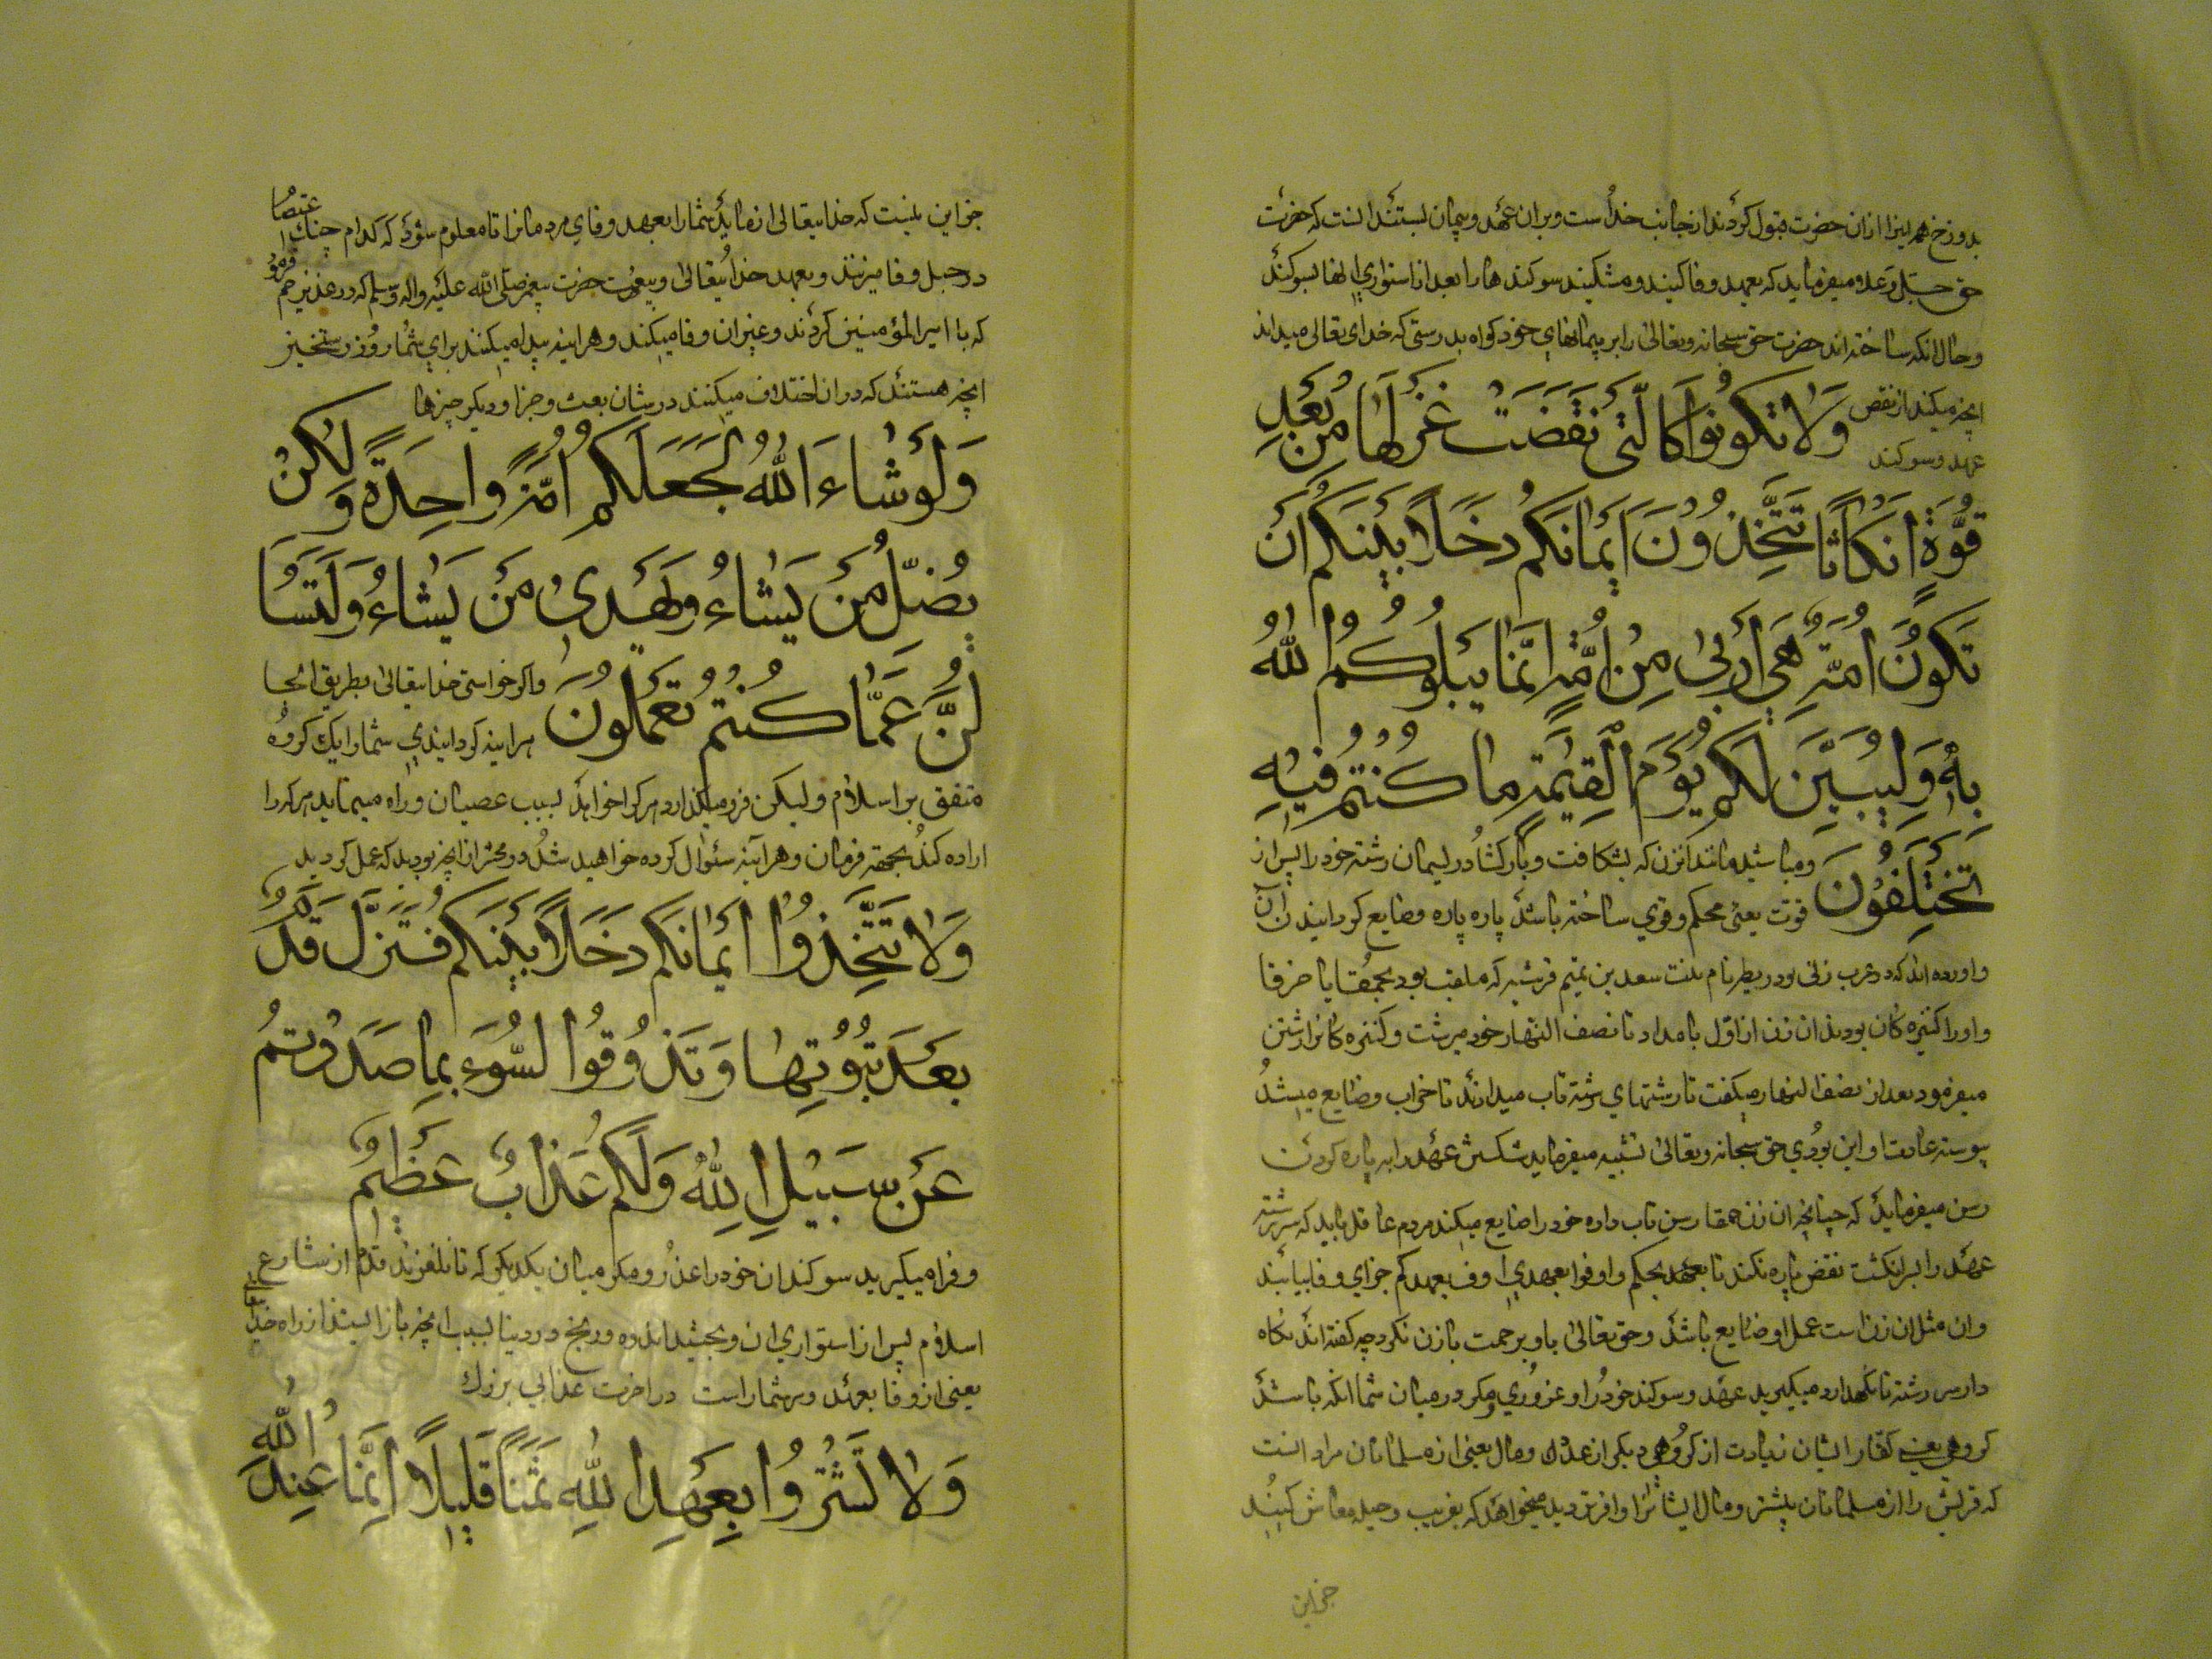 بدوزخ همه اینرا ازان حضرت قبول کردند از جانب خداست و بران عهد و پیمان بستند انست که حضرت
حق جل و علا میفرماید که بعهد وفا کنید و مشکنید سوکند ها را بعد از استواری انها بسوکند
و حال انکه ساخته اند حضرت حق سبحانه و تعالی را بر پیمانهای خود کواه بدرستی که خدای تعالی میداند
انچه میکند از نقض
عهد و سوکند
وَلَا تَكُونُوا كَالَّتِي نَقَضَتْ غَزْلَهَا مِنْ بَعْدِ
قُوَّةٍ أَنْكَاثًا تَتَّخِذُونَ أَيْمَانَكُمْ دَخَلًا بَيْنَكُمْ أَنْ
تَكُونَ أُمَّةٌ هِيَ أَرْبَى مِنْ أُمَّةٍ إِنَّمَا يَبْلُوكُمُ اللَّهُ
بِهِ وَلَيُبَيِّنَنَّ لَكُمْ يَوْمَ الْقِيمَةِ مَا كُنْتُمْ فِيهِ
تَخْتَلِفُونَ
و مباشید مانند آنزن که بشکافت و باز کشاد ریسمان رشته خود را پس از
قوت یعنی محکم و قوی ساخته باشد پاره پاره و ضایع کردانیدن آن
و اورده اند که در عرب زنی بود ریطه نام بنت سعد بن تمیم قرشیه که ملقب بود
و او را کنیزکان بودند ان زن از اول بامداد تا نصف النهار خود میرشت و کنیزکانرا رشتن
میفرمود بعد از نصف النهار میکفت تا رشتهای رشته تاب میدادند تا خراب و ضایع میشد
پیوسته عادت او این بودی حق سبحانه و تعالی تشبیه میفرماید شکستن عهد را به پاره کردن
رسن میفرماید که چنانچه ان زن حمقا رسن تاب داده خود را ضایع میکند مردم عاقل باید که سررشته
عهد را بسرانکشت نقض پاره نکنند تا بحکم و اوفوا بعهدی اوف بعهدکم جزای وفا بیابند
وان مثل ان زن است عمل او ضایع باشد و حق تعالی باو برحمت باز نکردد چه کفته اند نکاه
دار سر رشته تا نکهدارد میکیرید عهد و سوکند خود را و غروری و مکر در میان شما انکه باشد
کروهی یعنی کفار ایشان زیادت از کروهی دیکر از عدد و مال یعنی از مسلمانان مراد انست
که قریش را از مسلمانان بیشتر و مال ایشانرا وافرتر دید میخواهد که بفریب و حیله معاش کنند
جز این
جز این نیست که خدایتعالی ازماید شما را بعهد وفای مردمانرا تا معلوم شود که کدام چنک اعتصام
در حبل وفا میزنند و بعهد خدایتعالی و بیعت حضرت پیغمبر صلی الله علیه واله وسلم که در غدیر خم فرمود
که با امیر المؤمنین کردند و غیر ان وفا میکنند و هراینه پیدا میکند برای شما روز رستخیز
انچه هستند که دران اختلاف میکنند در شان بعث و جزا و دیکر چیزها
وَلَوْ شَاءَ اللَّهُ لَجَعَلَكُمْ أُمَّةً وَاحِدَةً وَلَكِنْ
يُضِلُّ مَنْ يَشَاءُ وَيَهْدِي مَنْ يَشَاءُ وَلَتُسْأَ
لُنَّ عَمَّا كُنْتُمْ تَعْمَلُونَ
و اکر خواستی خدایتعالی بطریق الجا
هراینه کردانیدی شما را یک کروه
متفق بر اسلام ولیکن فرو میکذارد هرکرا خواهد بسبب عصیان و راه مینماید هرکرا
اراده کند بجهة فرمان و هرآینه سئوال کرده خواهید شد در محشر از انچه بودید که عمل کردید
وَلَا تَتَّخِذُوا أَيْمَانَكُمْ دَخَلًا بَيْنَكُمْ فَتَزِلَّ قَدَمٌ
بَعْدَ ثُبُوتِهَا وَتَذُوقُوا السُّوءَ بِمَا صَدَدْتُمْ
عَنْ سَبِيلِ اللَّهِ وَلَكُمْ عَذَابٌ عَظِيمٌ
و فرا میکیرید سوکندان خود را غدر و مکر میان یکدیکر که تا نلغزند قدم از شارع
اسلام پس از استواری ان و بچشید اندوه و رنج در دنیا بسبب انچه باز ایستید از راه خدایتعالی
یعنی از وفا بعهد و مر شما راست در اخرت عذابی بزرک
وَلَا تَشْتَرُوا بِعَهْدِ اللَّهِ ثَمَنًا قَلِيلًا إِنَّمَا عِنْدَ اللَّهِ